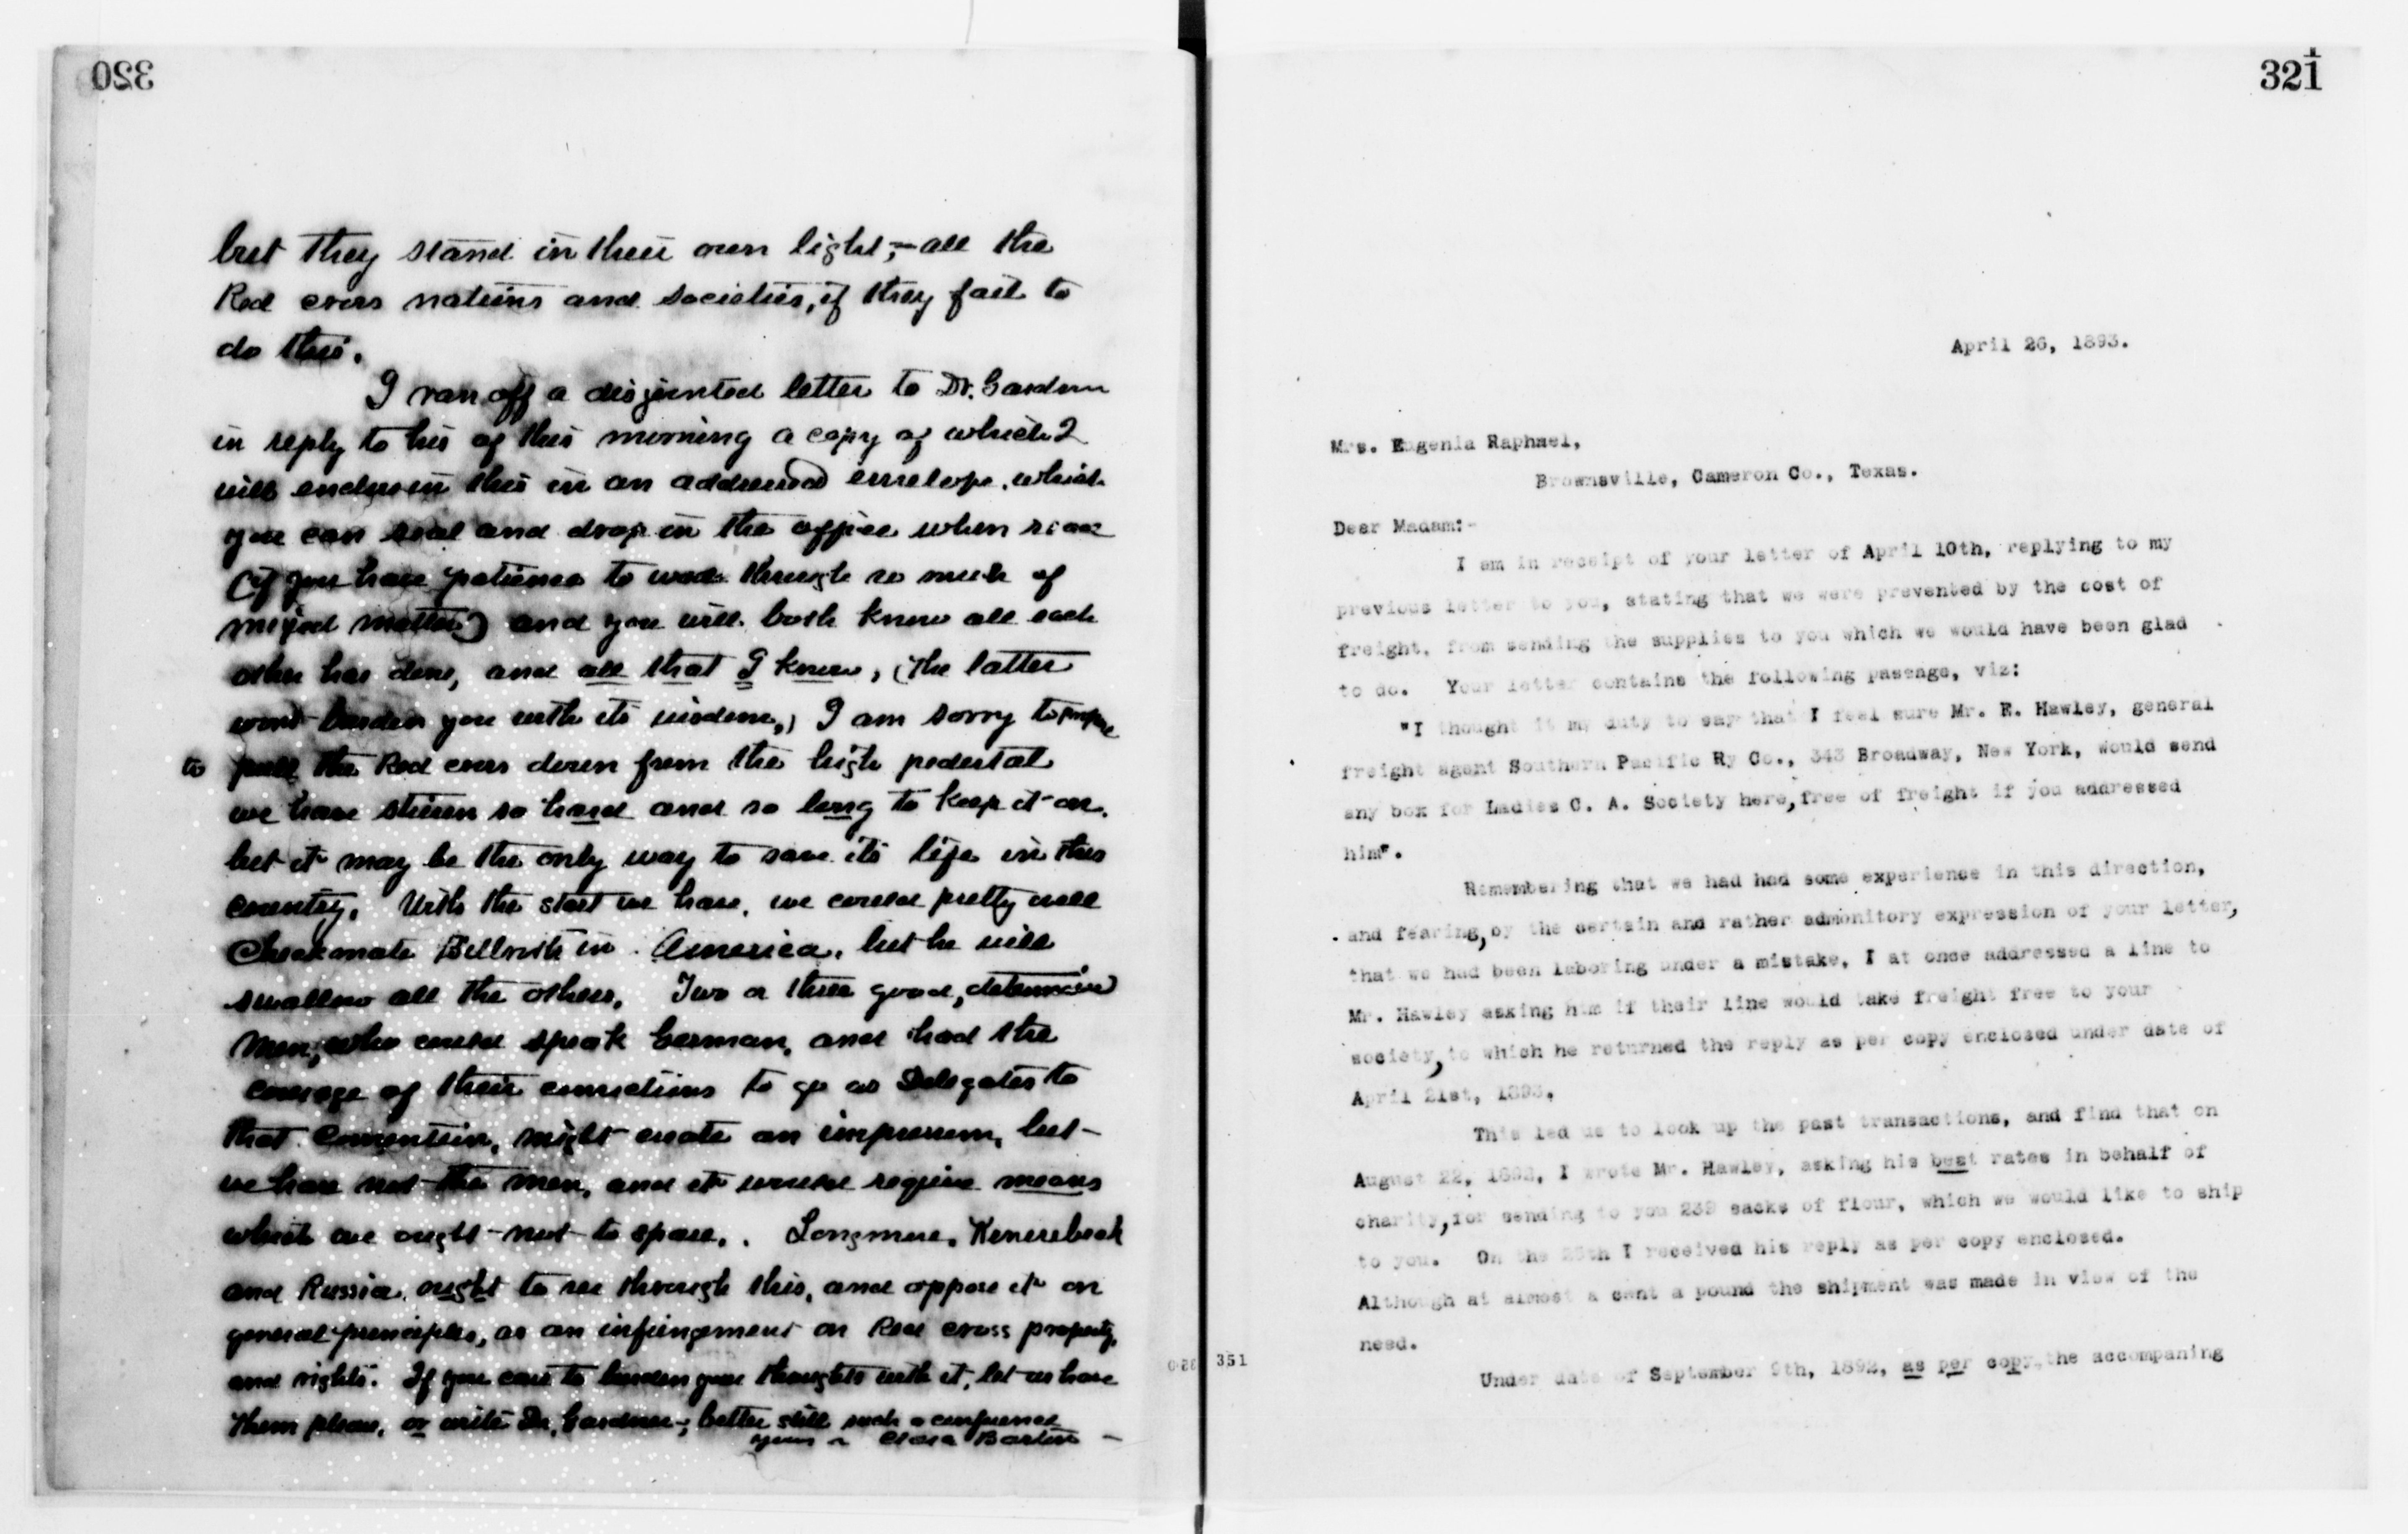 320
but they stand in their own light, – all the
Red cross nations and societies, if they fail to
do this.
I ran off a disjointed letter to Dr. Gardner
in reply to his of this morning a copy of which I
will enclose in this in an addressed envelope, which
you can seal and drop in the office when read
(if you have patience to wade through so much of
mixed matter) and you will both know all each
other has done, and all that I know, (the latter
wont burden you with its wisdom,) I am sorry to propose
to pull the Red cross down from the high pedestal
we have striven so hard and so long to keep it on,
but it may be the only way to save its life in this
country. With the start we have, we could pretty well
Checkmate Billroth in America, but he will
swallow all the others. Two or three good, determined
Men, who could speak German, and had the
courage of their convictions to go as Delegates to
that Convention, might create an impression, but –
we have not the men, and it would require means
which we ought not to spare. Longmore,
and Russia, ought to see through this, and oppose it on
general principles, as an infringement on Red cross property,
and rights. If you care to burden your thoughts with it, let us have
them please, or write Dr. Gardner –; better still such a conference
yours – Clara Barton –
321
April 26, 1893.
Mrs. Eugenia Raphael,
Brownsville, Cameron Co., Texas.
Dear Madam:-
I am in receipt of your letter of April 10th, replying to my
previous letter to you, stating that we were prevented by the cost of
freight, from sending the supplies to you which we would have been glad
to do. Your letter contains the following pasenge, viz:
"I thought it my duty to say that I feel sure Mr. E. Hawley, general
freight agent Southern Pacific Ry Co., 343 Broadway, New York, would send
any box for Ladies C. A. Society here, free of freight if you addressed
him".
Remembering that we had had some experience in this direction,
and fearing, by the certain and rather admonitory expression of your letter,
that we had been laboring under a mistake, I at once addressed a line to
Mr. Hawley asking him if their line would take freight free to your
society, to which he returned the reply as per copy enclosed under date of
April 21st, 1893.
This led us to look up the past transactions, and find that on
August 22, 1892, I wrote Mr. Hawley, asking his best rates in behalf of
charity, for sending to you 239 sacks of flour, which we would like to ship
to you. On the 25th I received his reply as per copy enclosed.
Although at almost a cent a pound the shipment was made in view of the
need.
351
Under date of September 9th, 1892, as per copy, the accompaning